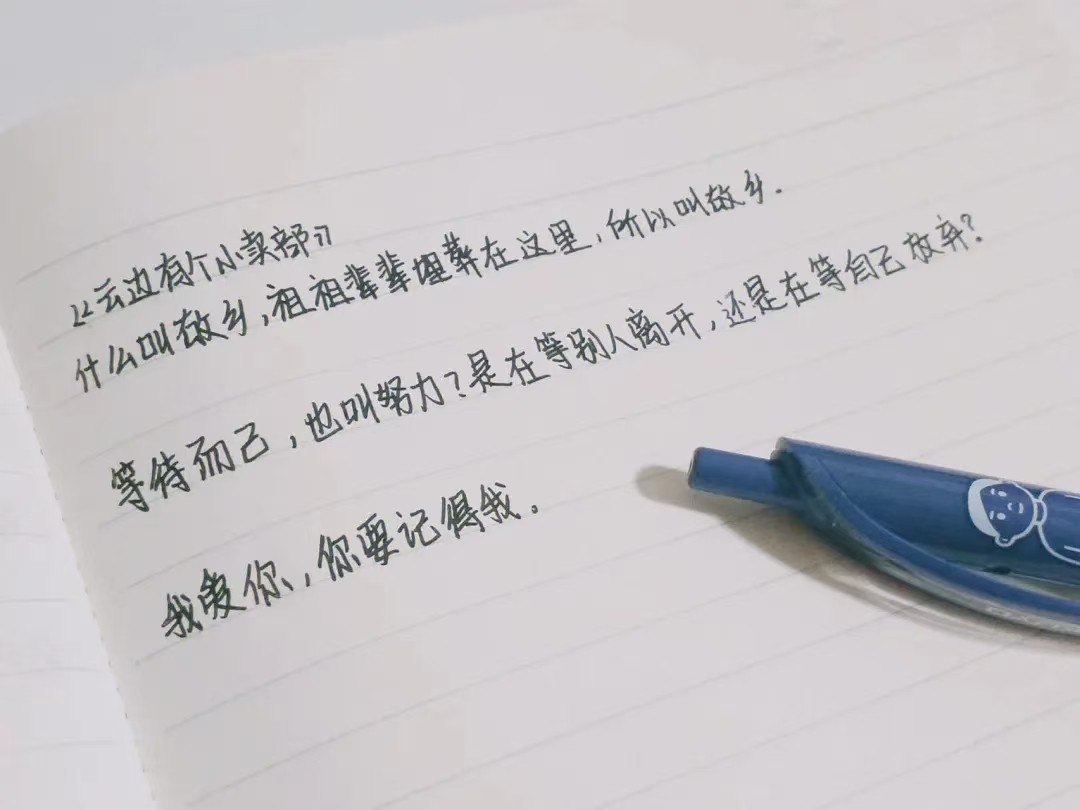 《云边有个小卖部》
什么叫故乡,祖祖辈辈埋葬在这里,所以叫故乡.
等待而己,也叫努力?是在等别人离开,还是在等自己放弃?
我爱你,你要记得我。